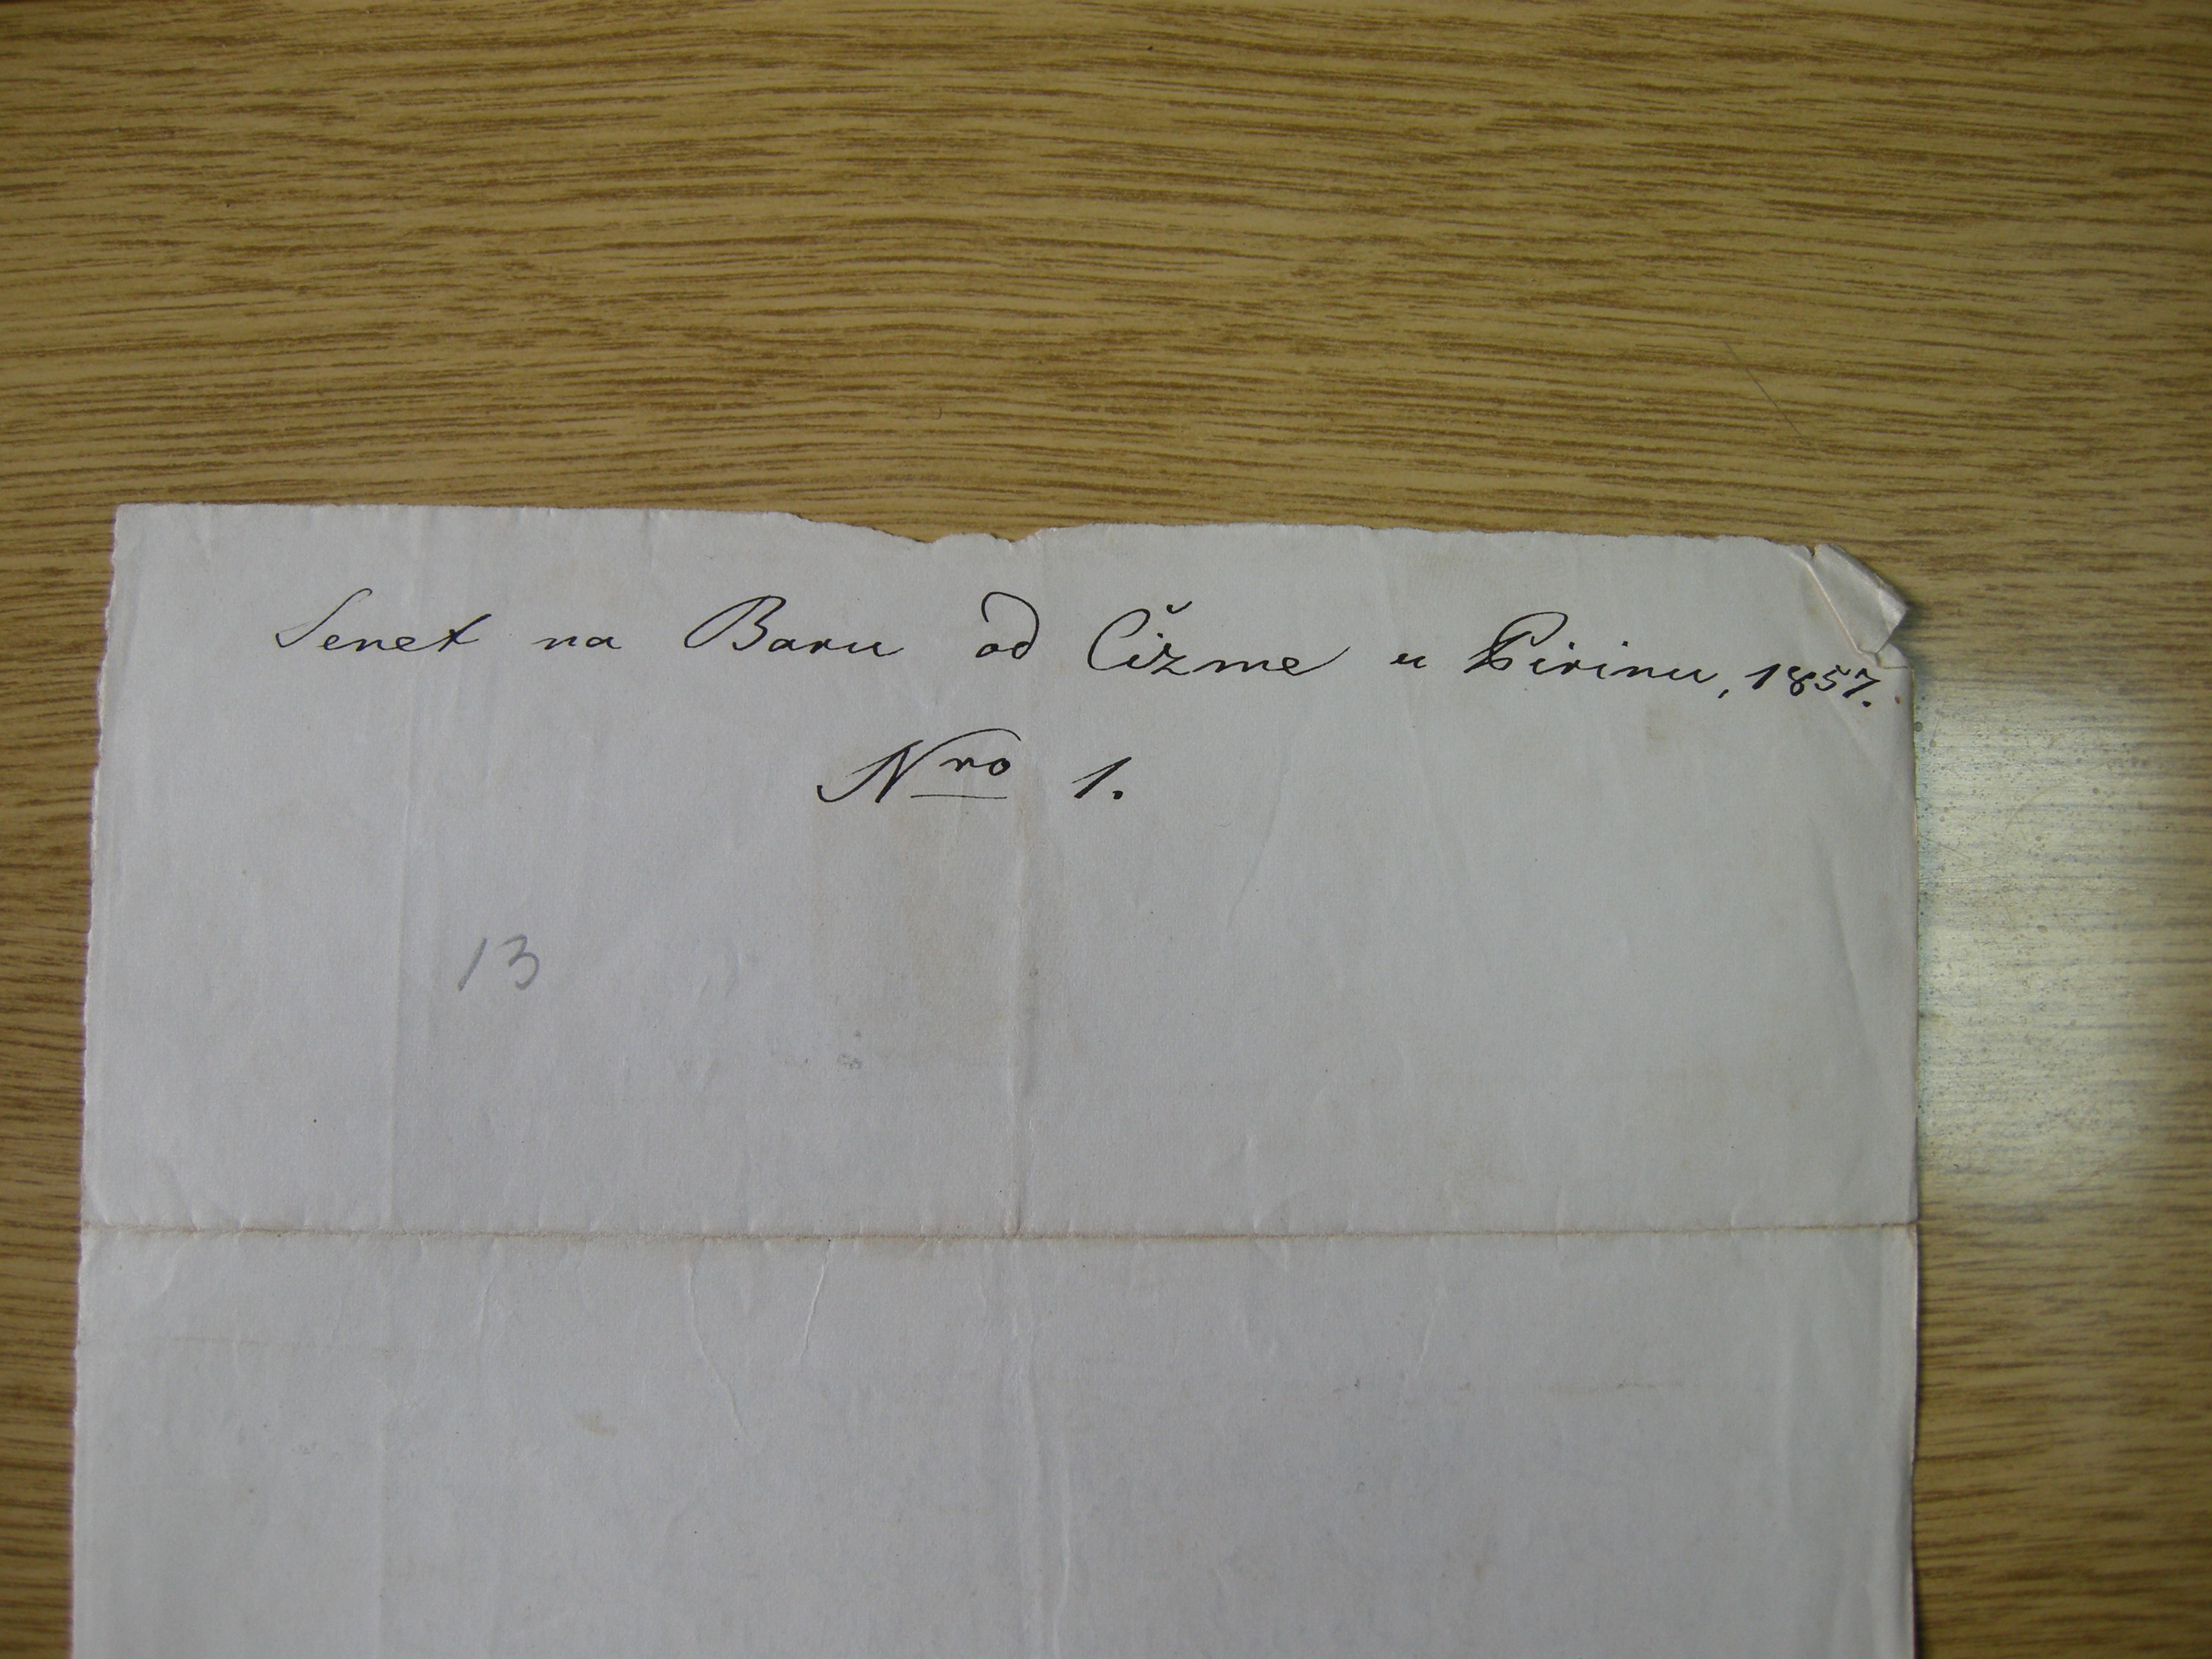 Senet na Baru od Čižme u Pirinu, 1857.
Nro 1.
13